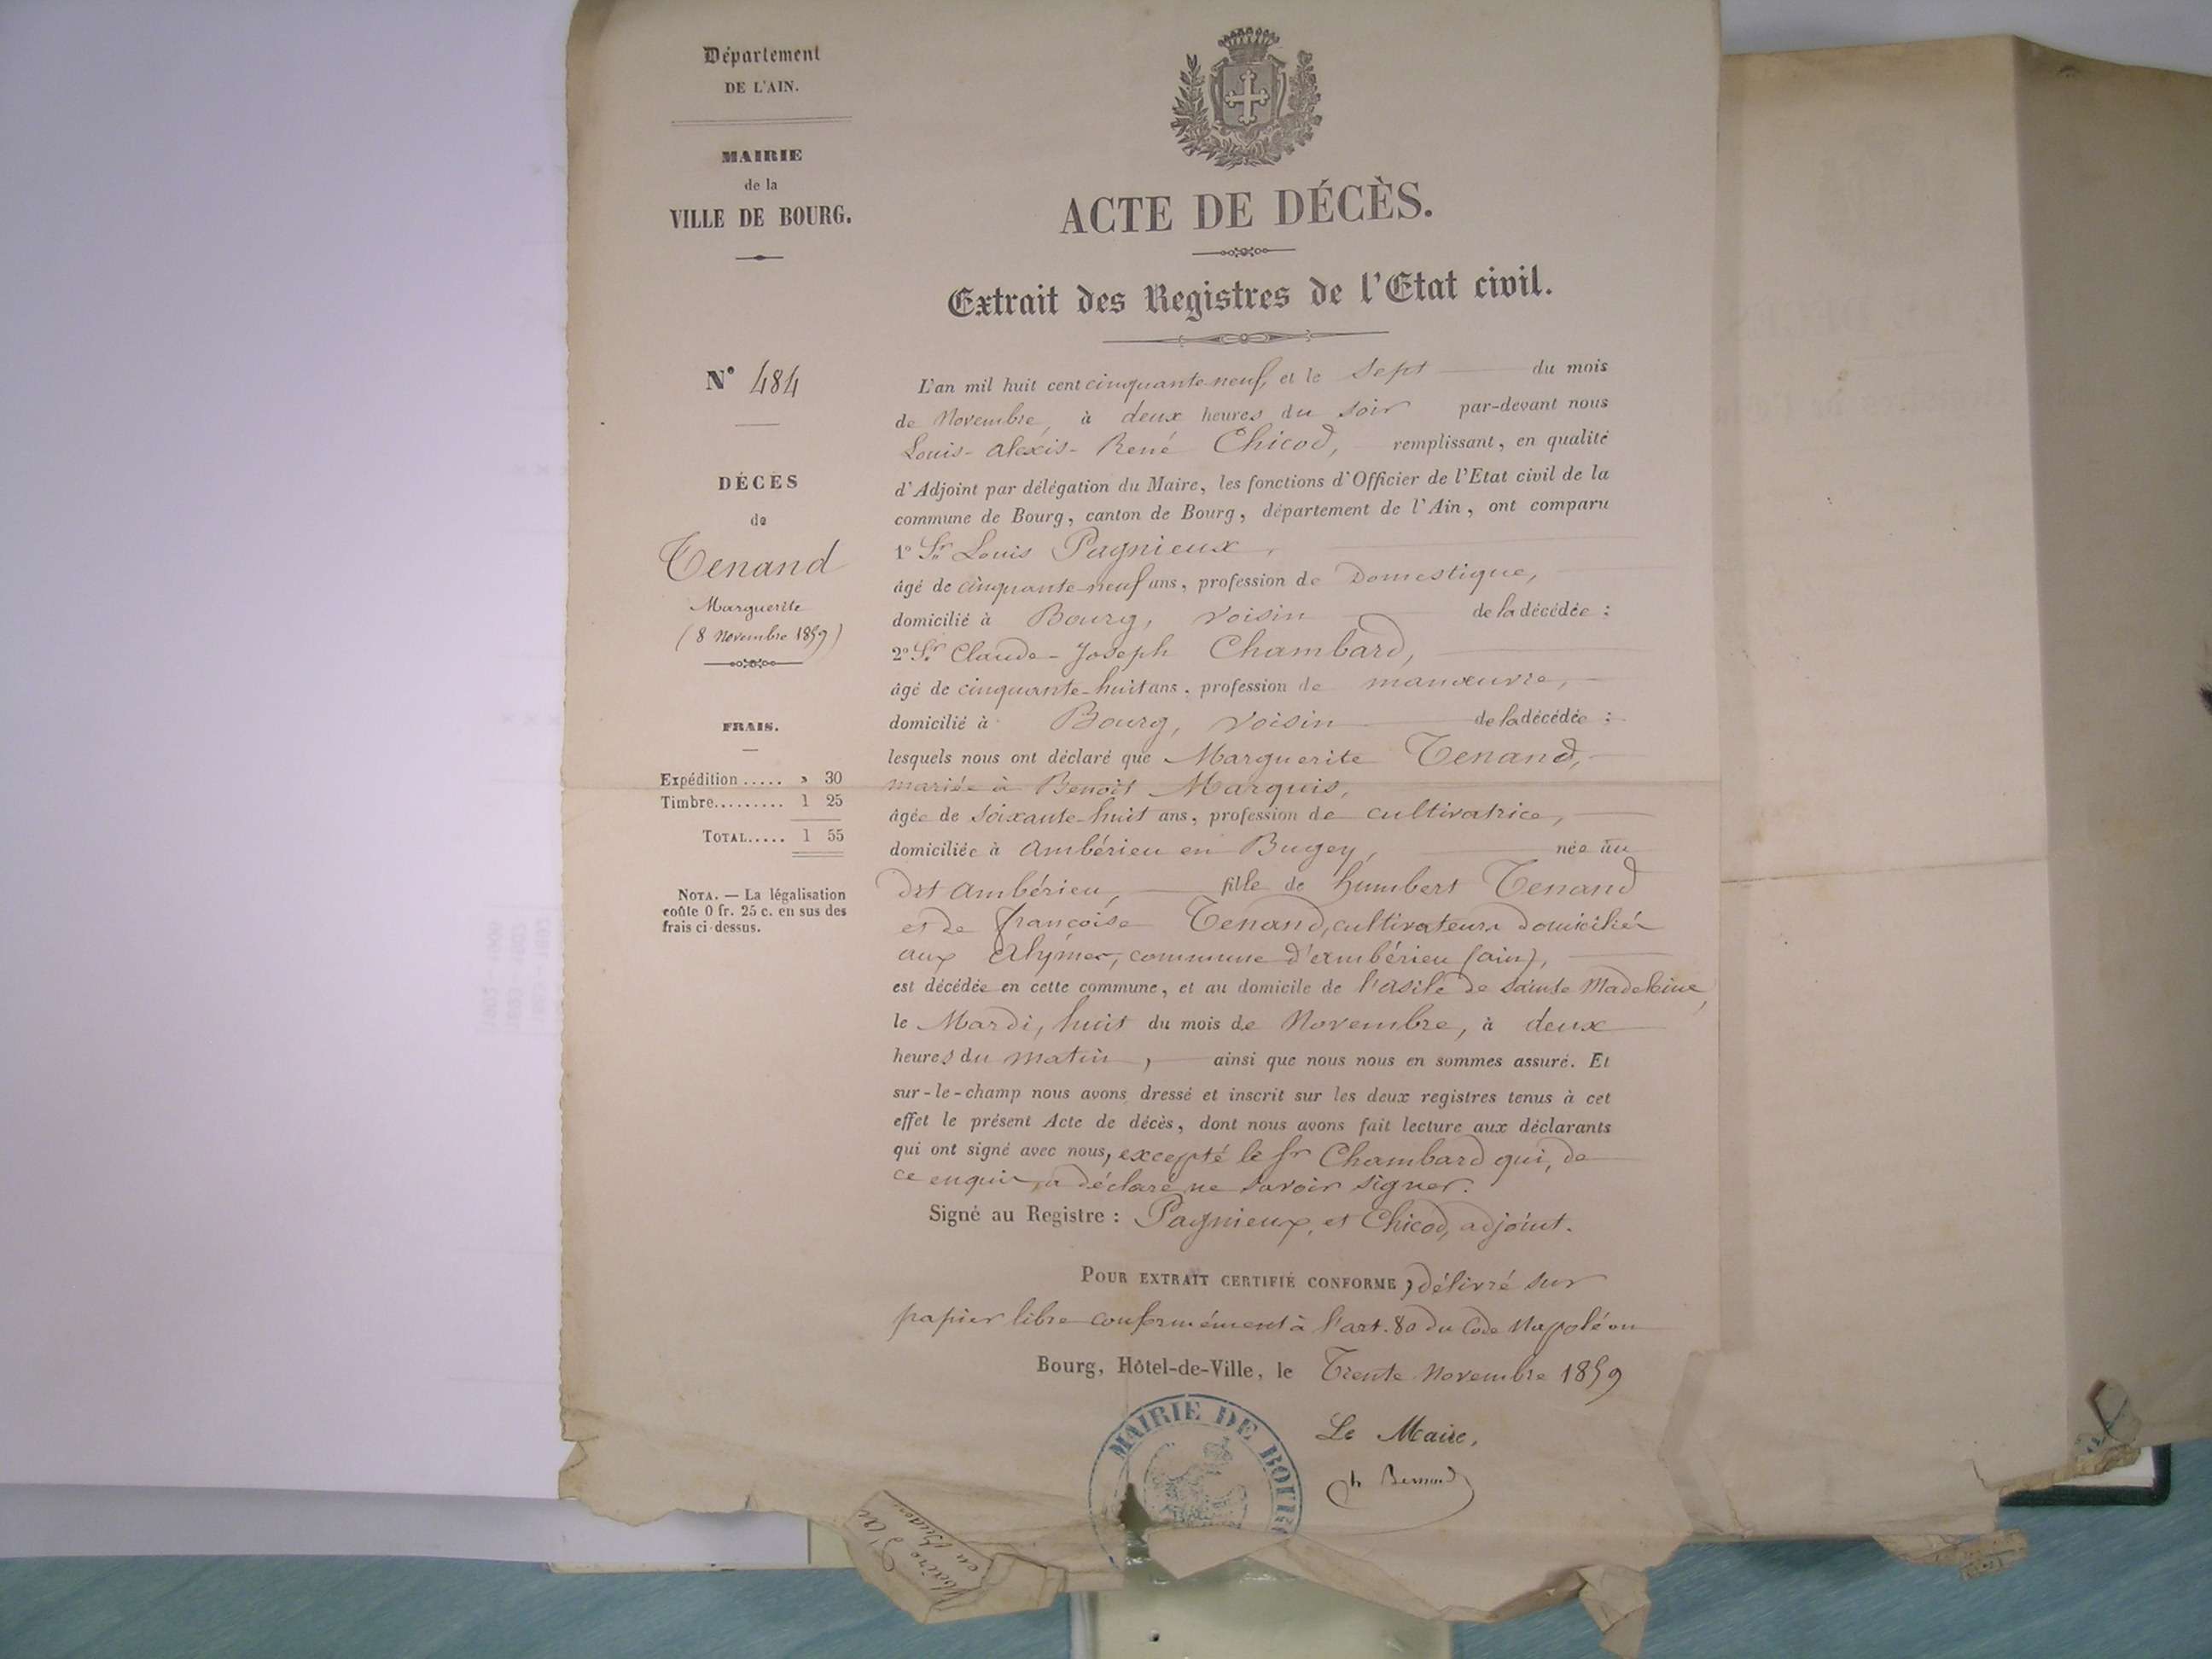 Département
DE L'AIN.
MAIRIE
de la
VILLE DE BOURG.
ACTE DE DÉCÈS.
Extrait des Registres de l'Etat civil.
N° 484
DÉCÈS
de
Tenand
Marguerite
(8 Novembre 1859)
FRAIS.
Expédition ..... » 30
Timbre......... 1 25
TOTAL..... 1 55
NOTA. — La légalisation
coûte 0 fr. 25 c. en sus des
frais ci-dessus.
L'an mil huit cent cinquante neuf, et le sept du mois
de Novembre, à deux heures du soir par-devant nous
Louis-Alexis-René Chicod, remplissant, en qualité
d'Adjoint par délégation du Maire, les fonctions d'Officier de l'Etat civil de la
commune de Bourg, canton de Bourg, département de l'Ain, ont comparu
1° Sr Louis Pagnieux,
âgé de cinquante-neuf ans, profession de Domestique,
domicilié à Bourg, voisin de la décédée :
2° Sr Claude-Joseph Chambard,
âgé de cinquante-huit ans, profession de manœuvre,
domicilié à Bourg, voisin de la décédée :
lesquels nous ont déclaré que Marguerite Tenand,
mariée à Benoît Marquis,
âgée de soixante-huit ans, profession de cultivatrice,
domiciliée à Ambérieu en Bugey, née au
dit Ambérieu, fille de humbert Tenand
et de françoise Tenand, cultivateurs domiciliés
aux Alymes, commune d'Ambérieu (ain),
est décédée en cette commune, et au domicile de l'asile de sainte Madeleine,
le Mardi, huit du mois de Novembre, à deux
heures du matin, ainsi que nous nous en sommes assuré. Et
sur-le-champ nous avons dressé et inscrit sur les deux registres tenus à cet
effet le présent Acte de décès, dont nous avons fait lecture aux déclarants
qui ont signé avec nous, excepté le sr Chambard qui, de
ce enquis, a déclaré ne savoir signer.
Signé au Registre : Pagnieux, et Chicod, adjoint.
POUR EXTRAIT CERTIFIÉ CONFORME, délivré sur
papier libre conformément à l'art. 80 du Code Napoléon
Bourg, Hôtel-de-Ville, le Trente Novembre 1859
Le Maire,
MAIRIE DE BOURG